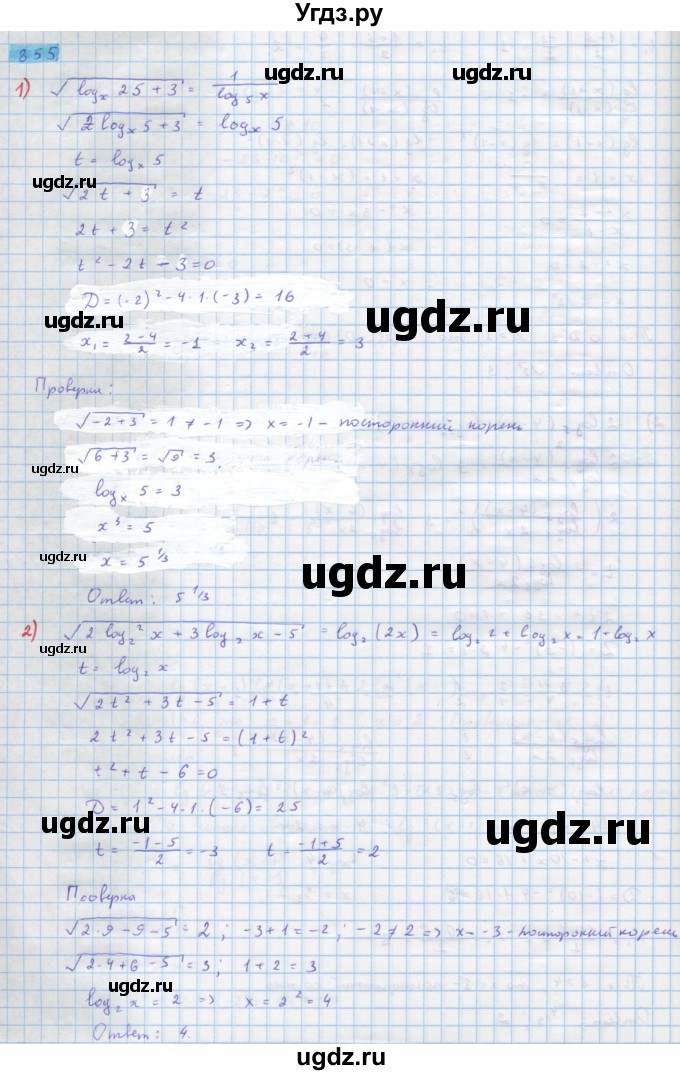 Угдз.ру
855
1) √(log_x 25 + 3) = 1/(log_5 x)
ugdz.ru ugdz.ru
√(2 log_x 5 + 3) = log_x 5
t = log_x 5
ugdz.ru
√(2t + 3) = t
2t + 3 = t²
t² - 2t - 3 = 0
D = (-2)² - 4·1·(-3) = 16
ugdz.ru ugdz.ru
x₁ = (2-4)/2 = -1 x₂ = (2+4)/2 = 3
Проверка:
√(-2+3) = 1 ≠ -1 => x = -1 - посторонний корень
√(6+3) = √9 = 3.
ugdz.ru
log_x 5 = 3
x³ = 5
ugdz.ru
x = 5^(1/3)
ugdz.ru
Ответ: 5^(1/3)
2) √(2 log₂² x + 3 log₂ x - 5) = log₂ (2x) = log₂ 2 + log₂ x = 1 + log₂ x
ugdz.ru
t = log₂ x
√(2t² + 3t - 5) = 1 + t
2t² + 3t - 5 = (1+t)²
t² + t - 6 = 0
D = 1² - 4·1·(-6) = 25
ugdz.ru ugdz.ru
t = (-1-5)/2 = -3 t = (-1+5)/2 = 2
Проверка
√(2·9 - 9 - 5) = 2; -3+1 = -2; -2 ≠ 2 => x = -3 - посторонний корень
√(2·4 + 6 - 5) = 3; 1 + 2 = 3
ugdz.ru
log₂ x = 2 => x = 2² = 4
Ответ: 4.
ugdz.ru
ugdz.ru